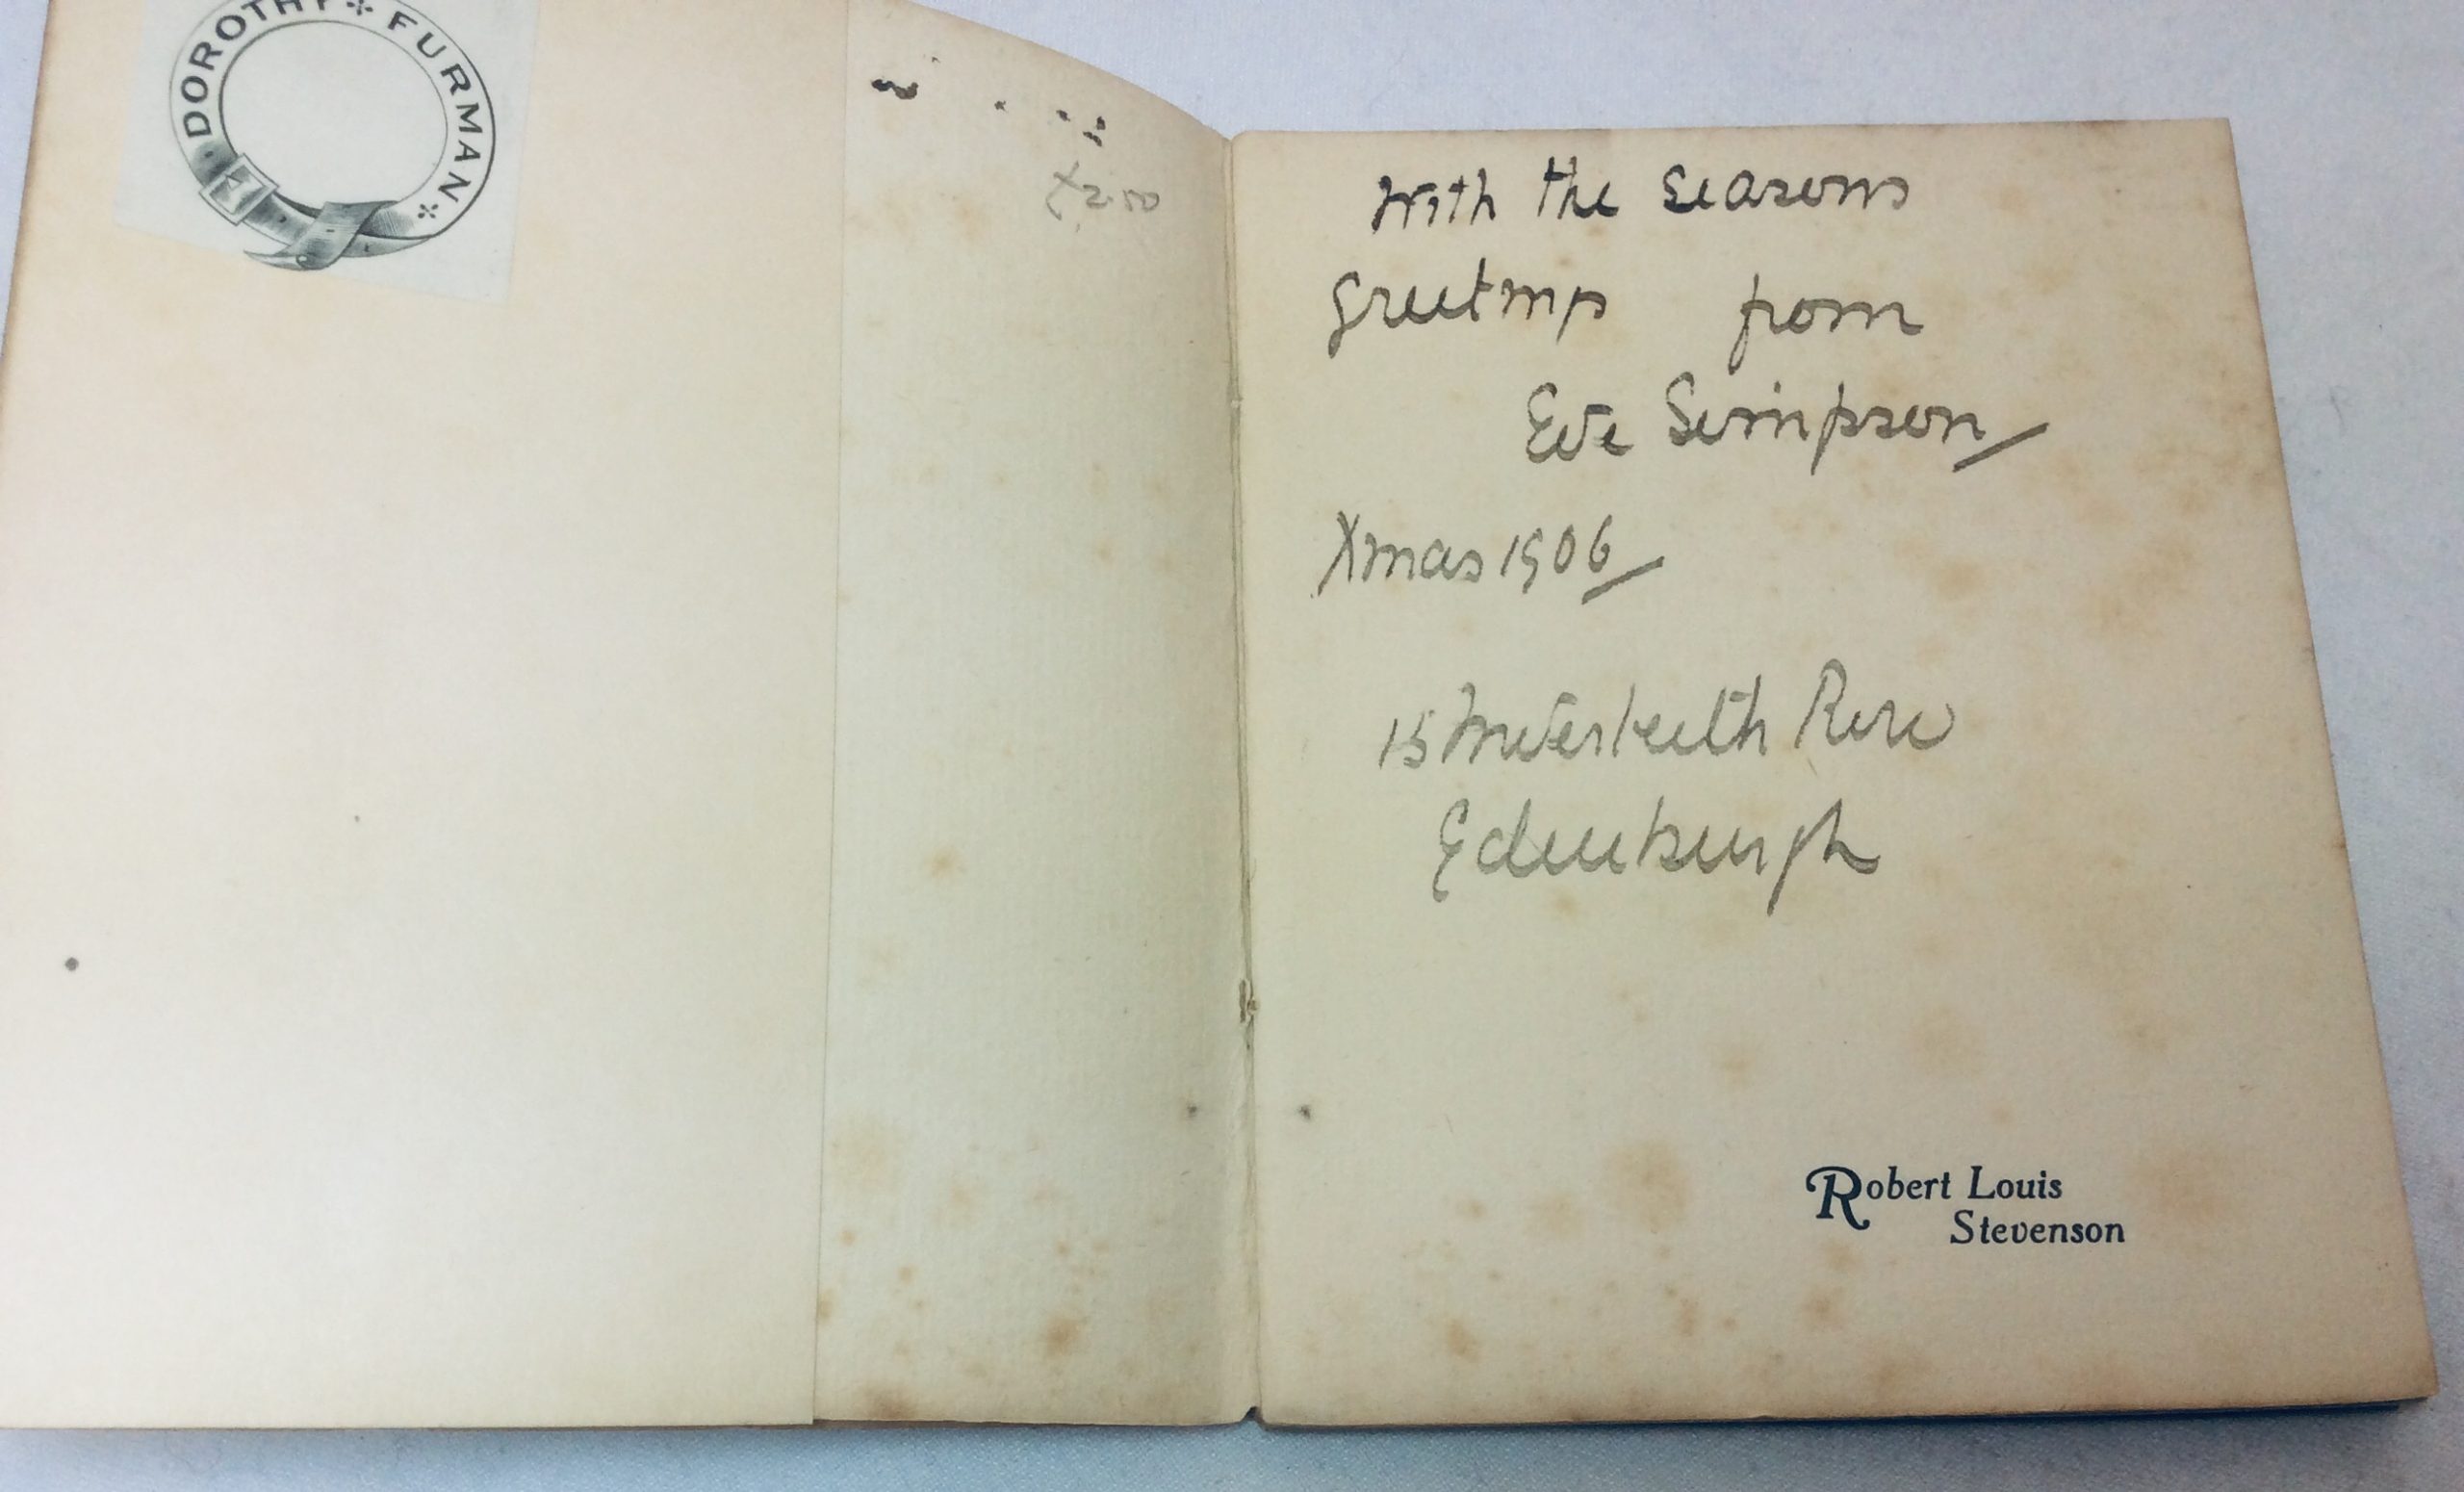 DOROTHY FURMAN
With the seasons
greetings from
Eve Simpson
Xmas 1906
15 Inverleith Row
Edinburgh
Robert Louis
Stevenson